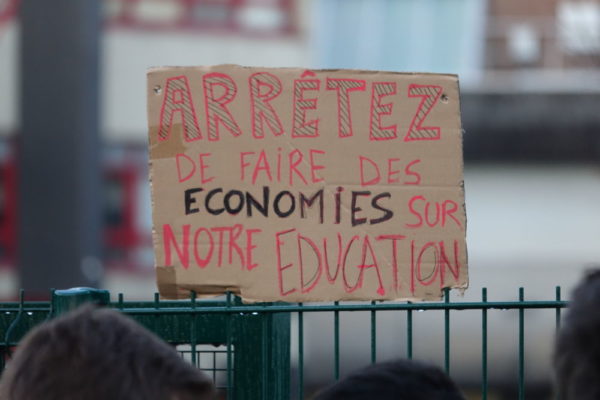 ARRÊTEZ
DE FAIRE DES
ECONOMIES SUR
NOTRE EDUCATION